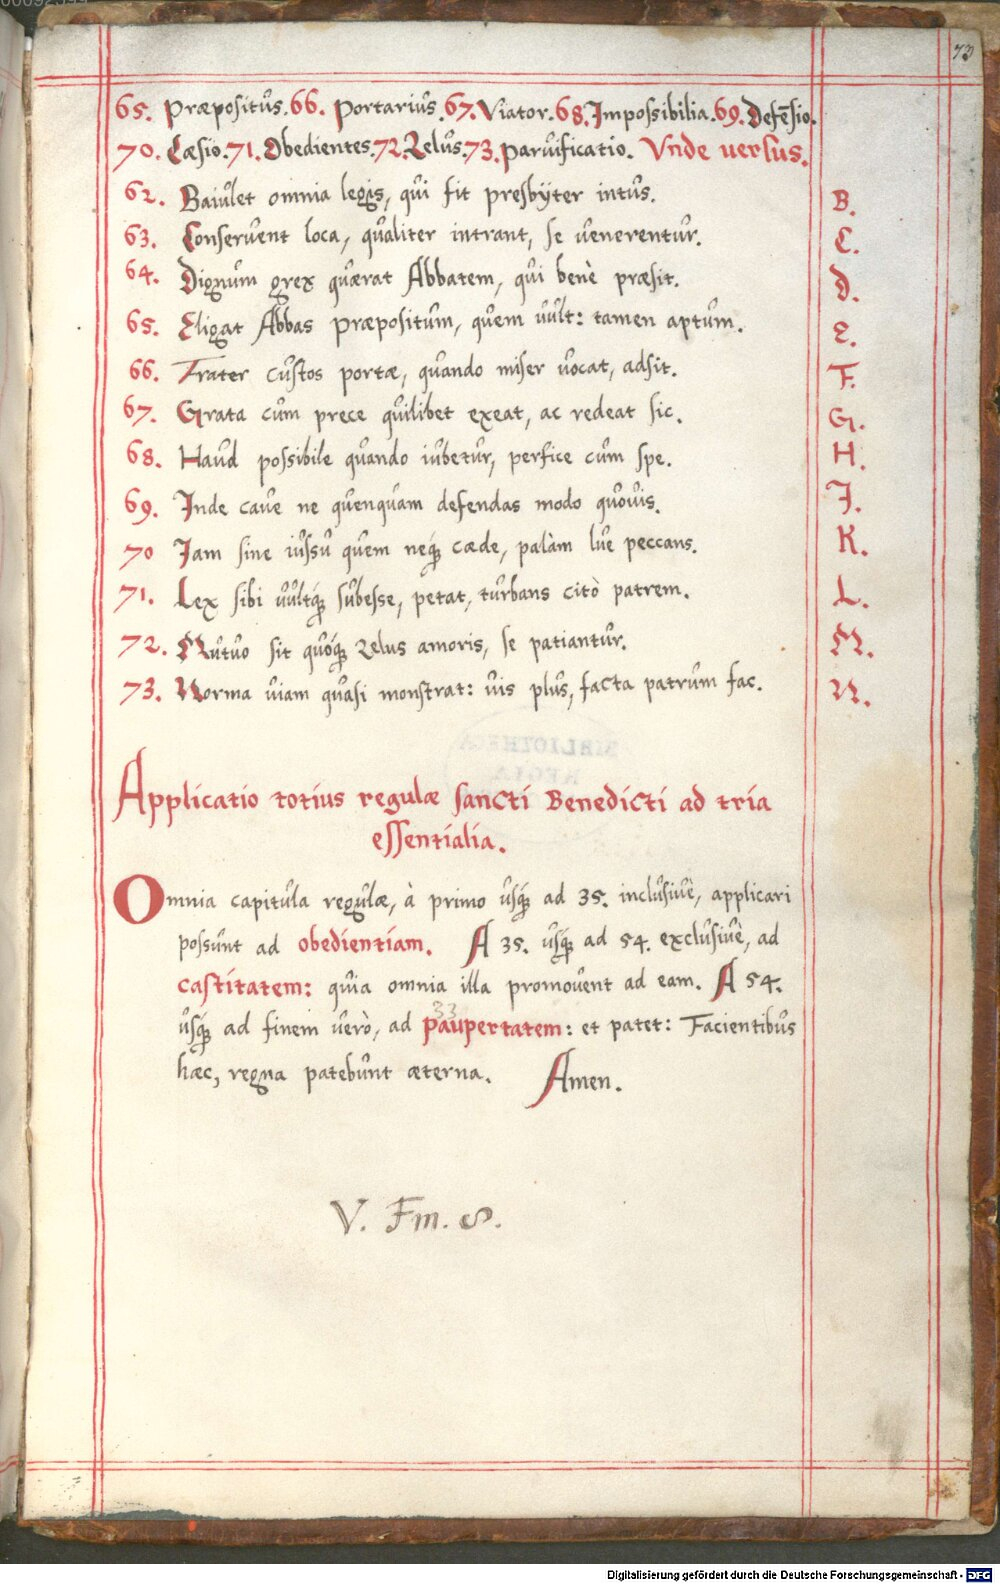 73
65. Præpositus. 66. Portarius. 67. Viator. 68. Impossibilia. 69. Defēsio.
70. Cæsio. 71. Obedientes. 72. Zelus. 73. Paruificatio. Vnde uersus.
62. Baiulet omnia legis, qui fit presbyter intus. B.
63. Conseruent loca, qualiter intrant, se uenerentur. C.
64. Dignum grex quærat Abbatem, qui benè præsit. D.
65. Eligat Abbas Præpositum, quem uult: tamen aptum. E.
66. Frater custos portæ, quando miser uocat, adsit. F.
67. Grata cum prece quilibet exeat, ac redeat sic. G.
68. Haud possibile quando iubetur, perfice cum spe. H.
69. Inde caue ne quenquam defendas modo quouis. I.
70 Iam sine iussu quem neq́; cæde, palàm lue peccans. K.
71. Lex sibi uultq́; subesse, petat, turbans citò patrem. L.
72. Mutuo sit quóq́; zelus amoris, se patiantur. M.
73. Norma uiam quasi monstrat: uis plus, facta patrum fac. N.
Applicatio totius regulæ sancti Benedicti ad tria
essentialia.
Omnia capitula regulæ, à primo usq́; ad 35. inclusiuè, applicari
possunt ad obedientiam. A 35. usq́; ad 54. exclusiuè, ad
castitatem: quia omnia illa promouent ad eam. A 54.
usq́; ad finem uerò, ad paupertatem: et patet: Facientibus
hæc, regna patebunt æterna. Amen.
33
V. Fm. S.
BIBLIOTHECA
REGIA
Digitalisierung gefördert durch die Deutsche Forschungsgemeinschaft - DFG